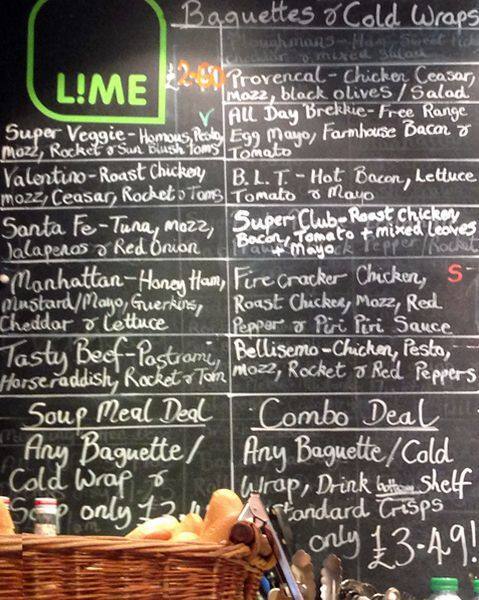 L!ME
Baguettes & Cold Wraps
£2.60
Super Veggie - Homous, Pesto,
Mozz, Rocket & Sun Blush toms
Valentino - Roast Chicken,
mozz, Ceasar, Rocket & Toms
Santa Fe - Tuna, Mozz,
Jalapenos & Red Onion
Manhattan - Honey Ham,
Mustard/Mayo, Guerkins,
Cheddar & Lettuce
Tasty Beef - Pastrami,
Horseraddish, Rocket & Tom
Soup Meal Deal
Any Baguette/
Cold Wrap &
only
Ploughmans - Ham, Sweet
Cheddar & mixed Salad
Provencal - Chicken Ceasar,
Mozz, black olives / Salad
All Day Brekkie - Free Range
Egg Mayo, Farmhouse Bacon &
Tomato
B.L.T - Hot Bacon, Lettuce
Tomato & Mayo
Super Club - Roast Chicken,
Bacon, Tomato + mixed Leaves
+ Mayo
Fire Cracker Chicken, S
Roast Chicken, Mozz, Red
Pepper & Piri Piri Sauce
Bellisemo - Chicken, Pesto,
Mozz, Rocket & Red Peppers
Combo Deal
Any Baguette/Cold
Wrap, Drink bottom shelf
Standard Crisps
only £3.49!